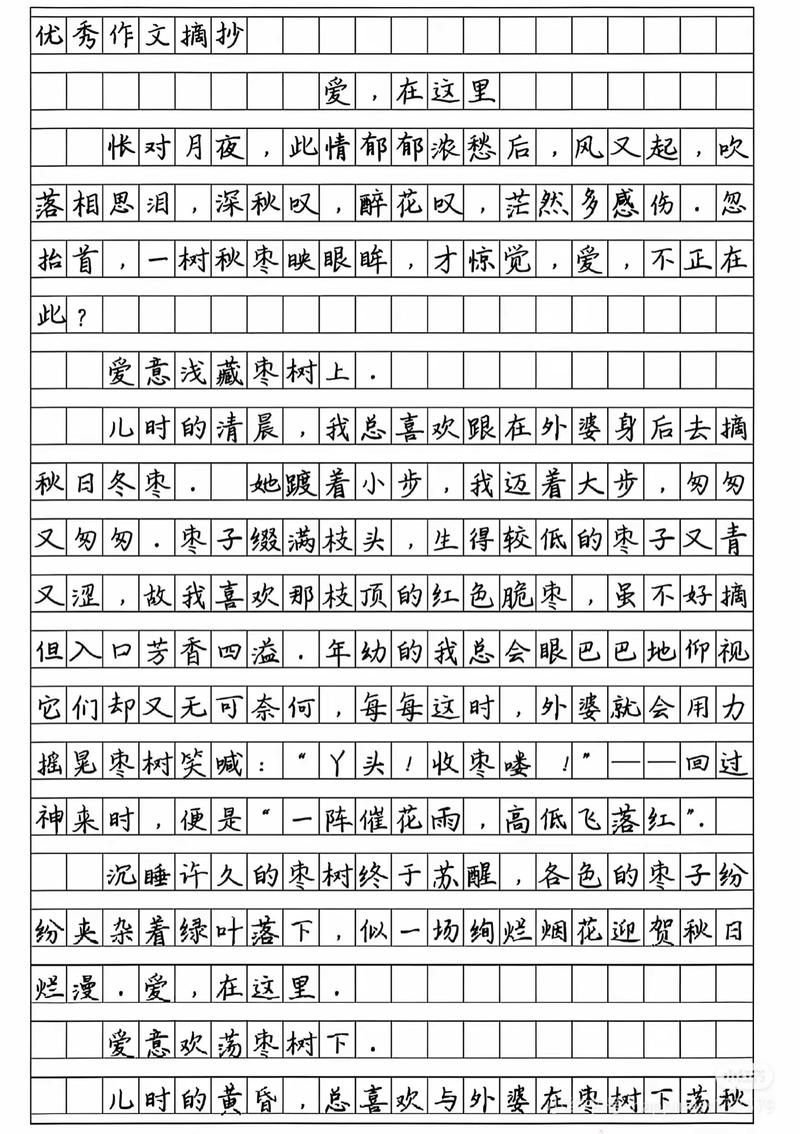 优秀作文摘抄
爱，在这里
怅对月夜，此情郁郁浓愁后，风又起，吹
落相思泪，深秋叹，醉花叹，茫然多感伤．忽
抬首，一树秋枣映眼眸，才惊觉，爱，不正在
此？
爱意浅藏枣树上．
儿时的清晨，我总喜欢跟在外婆身后去摘
秋日冬枣．她踱着小步，我迈着大步，匆匆
又匆匆．枣子缀满枝头，生得较低的枣子又青
又涩，故我喜欢那枝顶的红色脆枣，虽不好摘
但入口芳香四溢．年幼的我总会眼巴巴地仰视
它们却又无可奈何，每每这时，外婆就会用力
摇晃枣树笑喊：“丫头！收枣喽！”——回过
神来时，便是“一阵催花雨，高低飞落红”．
沉睡许久的枣树终于苏醒，各色的枣子纷
纷夹杂着绿叶落下，似一场绚烂烟花迎贺秋日
烂漫．爱，在这里．
爱意欢荡枣树下．
儿时的黄昏，总喜欢与外婆在枣树下荡秋
小红书